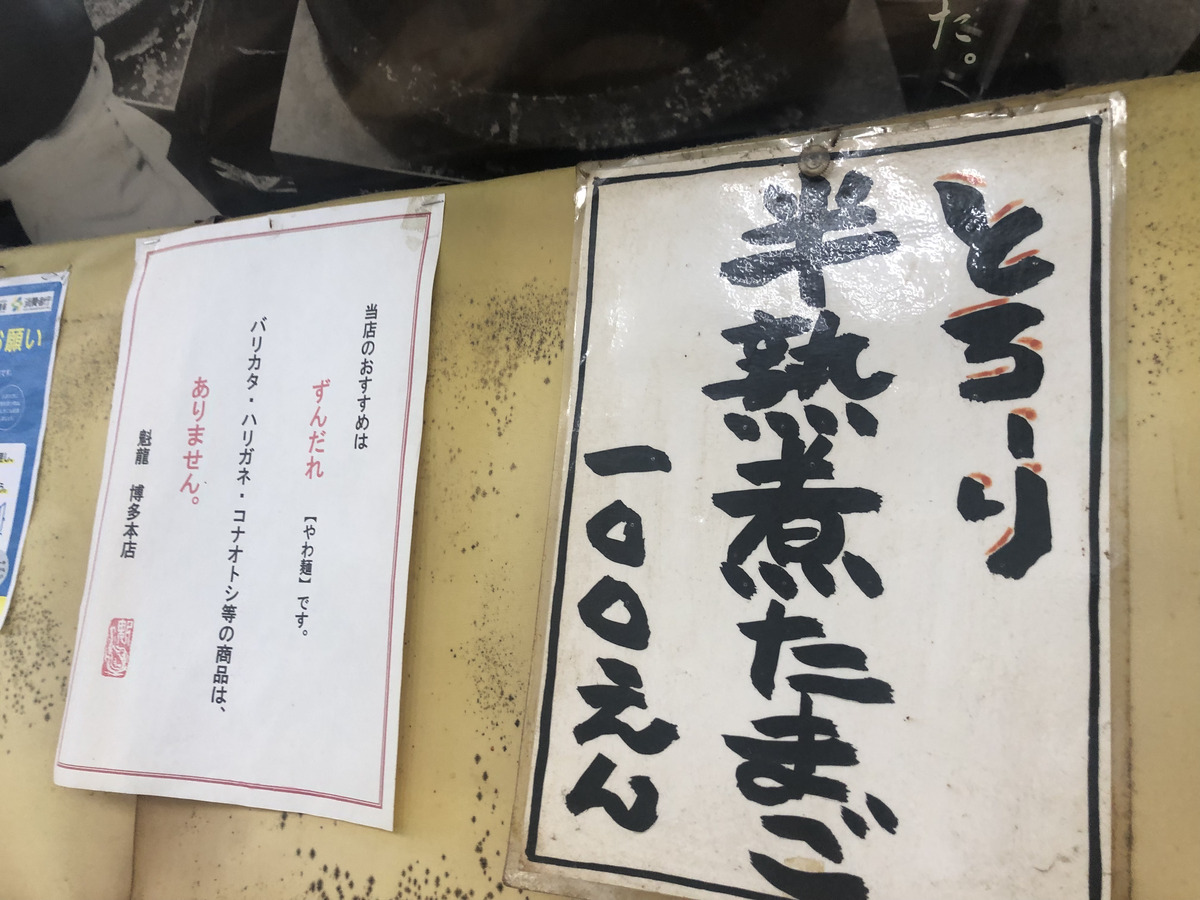 た。
とろーり
半熟煮たまご
一〇〇えん
当店のおすすめは
ずんだれ【やわ麺】です。
バリカタ・ハリガネ・コナオトシ等の商品は、
ありません。
魁龍 博多本店
消費者庁
お願い